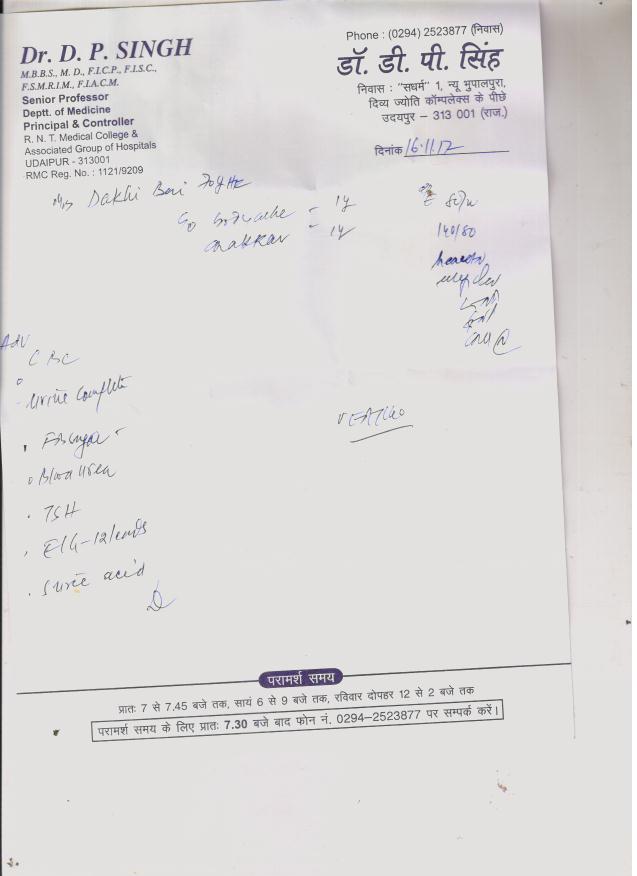 Dr. D. P. SINGH
M.B.B.S., M. D., F.I.C.P., F.I.S.C.,
F.S.M.R.I.M., F.I.A.C.M.
Senior Professor
Deptt. of Medicine
Principal & Controller
R. N. T. Medical College &
Associated Group of Hospitals
UDAIPUR - 313001
RMC Reg. No. : 1121/9209
Phone : (0294) 2523877 (निवास)
डॉ. डी. पी. सिंह
निवास : "सधर्म" 1, न्यू भुपालपुरा,
दिव्य ज्योति कॉम्पलेक्स के पीछे
उदयपुर – 313 001 (राज.)
दिनांक 16.11.17
Dakhi Bai
- 1y
chakkar - 1y
140/80
Adv
CBC
Urine Complete
Blood Urea
TSH
ECG-12 leads
S uric acid
VERTIGO
परामर्श समय
प्रातः 7 से 7.45 बजे तक, सायं 6 से 9 बजे तक, रविवार दोपहर 12 से 2 बजे तक
परामर्श समय के लिए प्रातः 7.30 बजे बाद फोन नं. 0294–2523877 पर सम्पर्क करें।